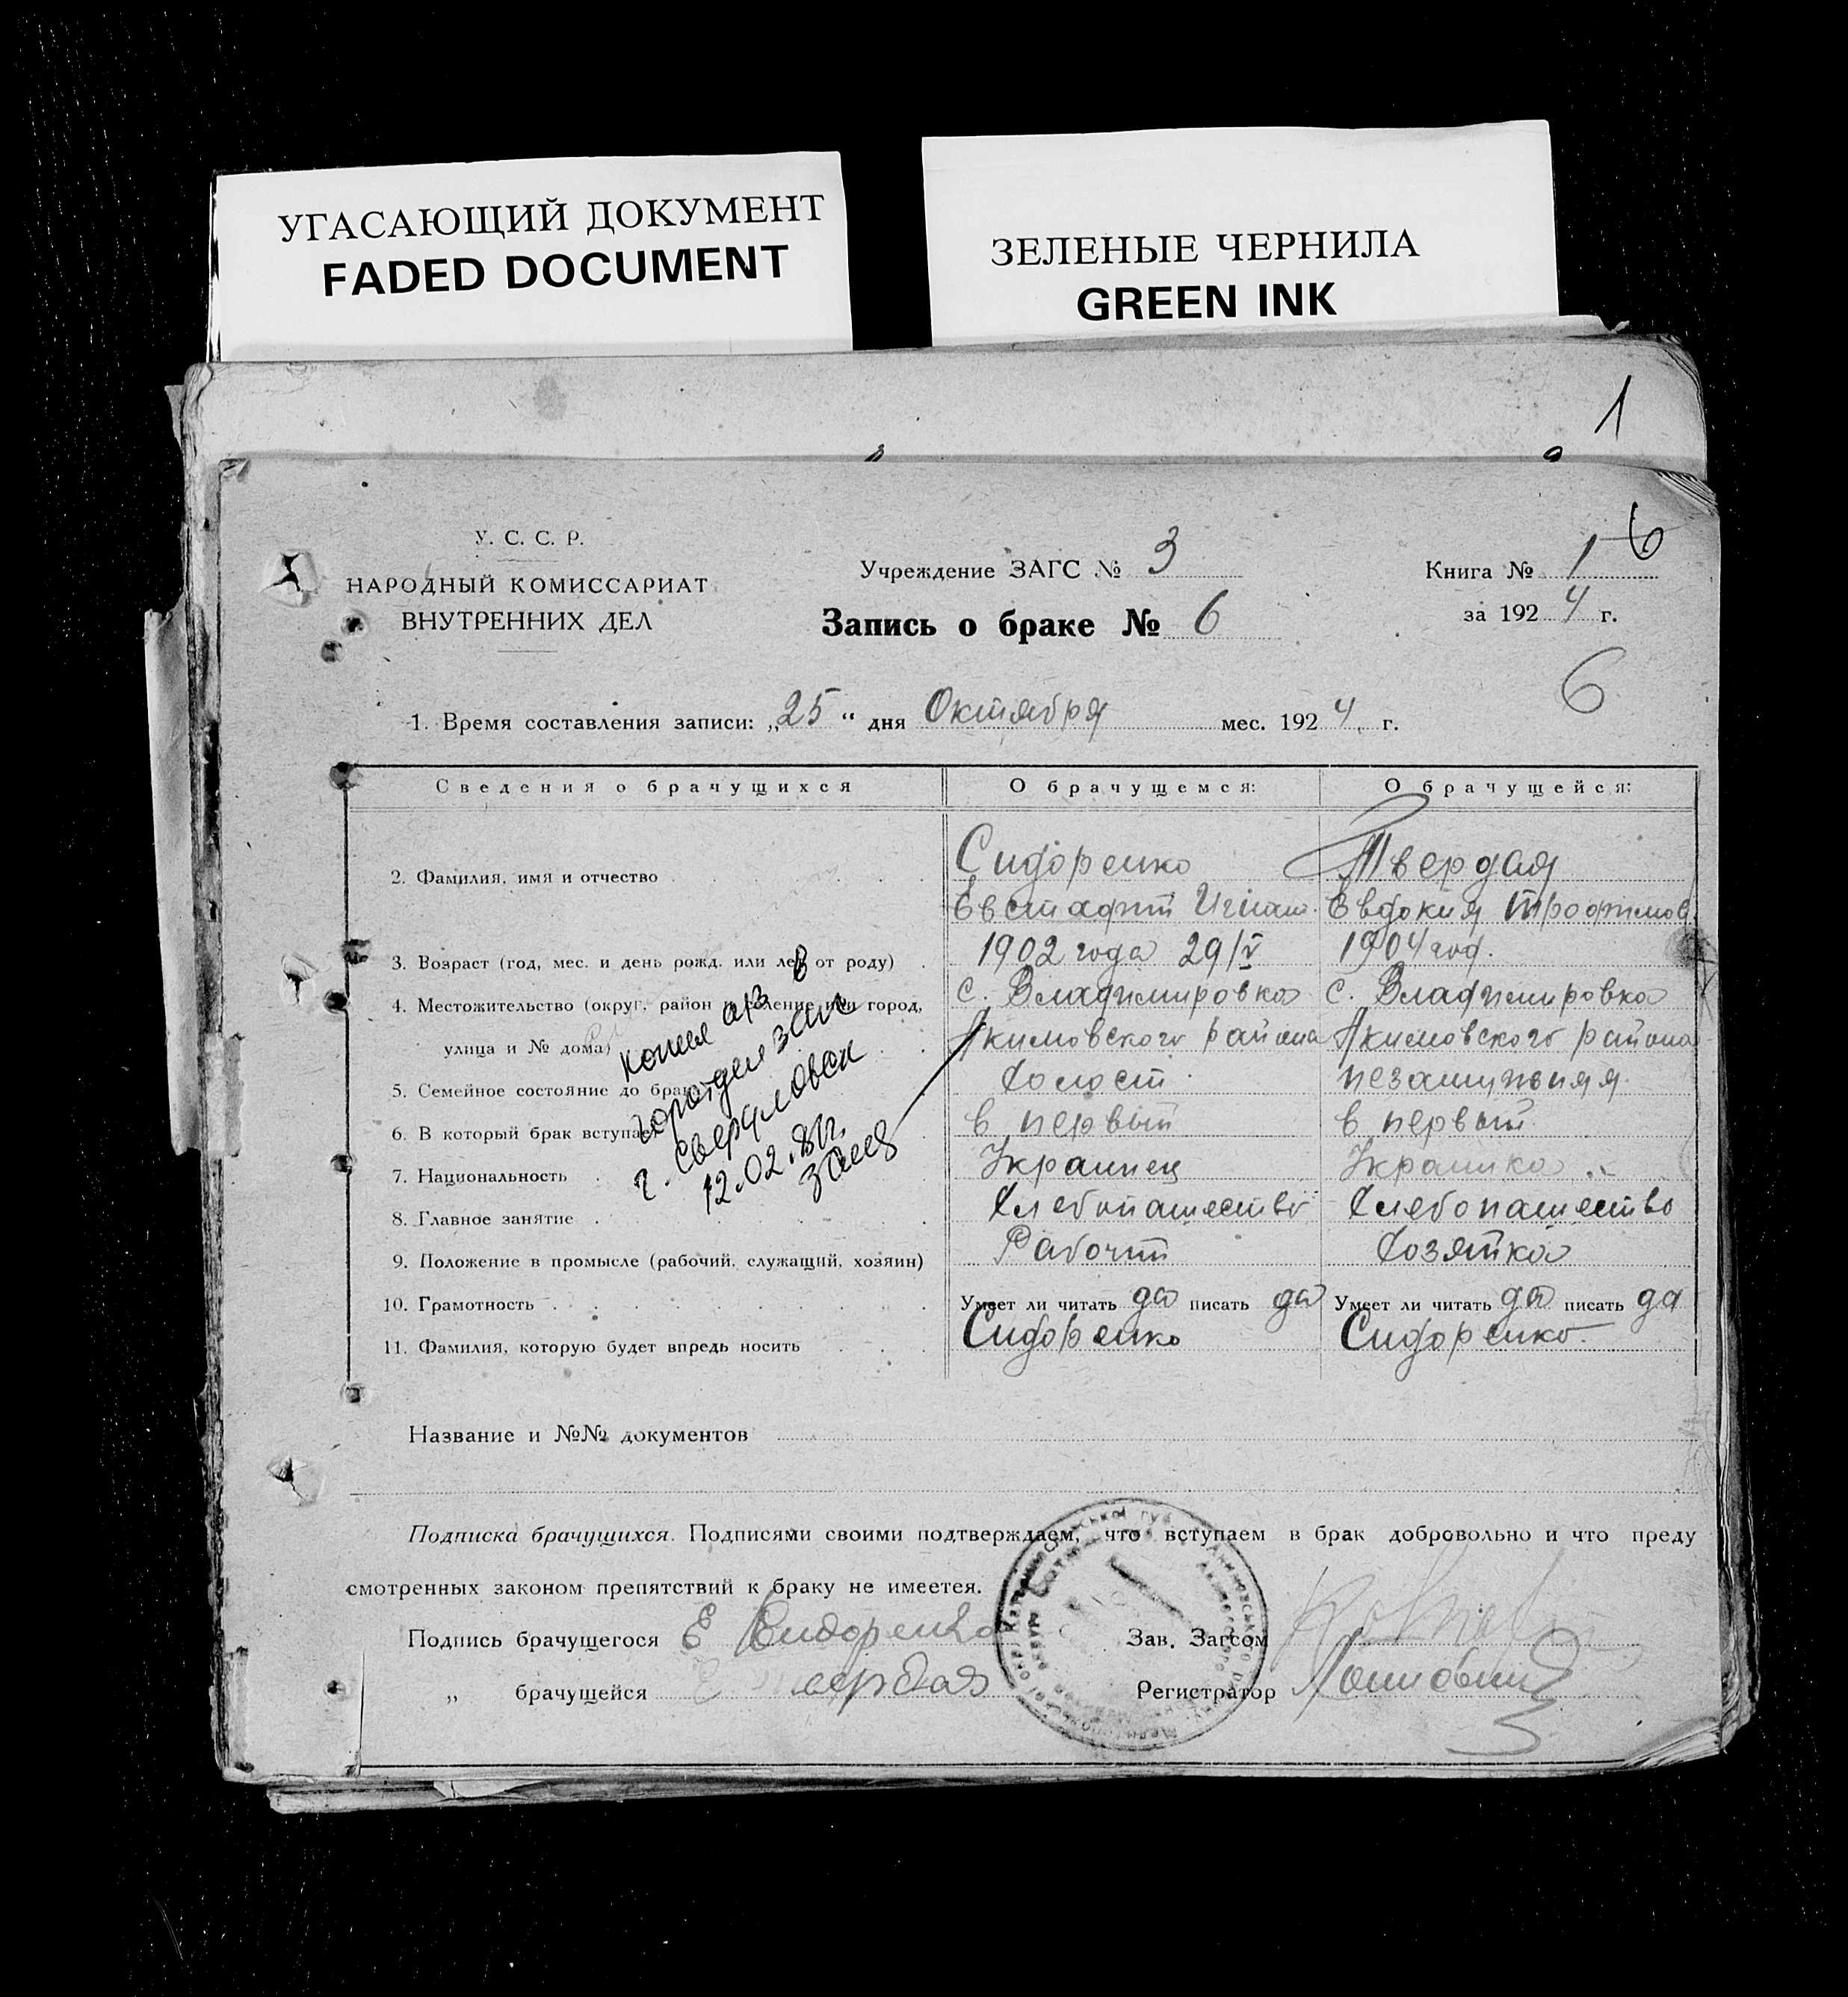 УГАСАЮЩИЙ ДОКУМЕНТ
FADED DOCUMENT
ЗЕЛЕНЫЕ ЧЕРНИЛА
GREEN INK
1
6
У. С. С. Р.
НАРОДНЫЙ КОМИССАРИАТ
ВНУТРЕННИХ ДЕЛ
Учреждение ЗАГС № 3
Запись о браке № 6
Книга № 1
за 1924 г.
6
1. Время составления записи: „25“ дня Октября мес. 1924 г.
Сведения о брачущихся О брачущемся: О брачущейся:
2. Фамилия, имя и отчество Сидоренко Твердая
Евстафий Игнат. Евдокия Трофимов.
3. Возраст (год, мес. и день рожд. или лет от роду) 1902 года 29/V 1904 год.
4. Местожительство (округ, район и селение или город, с. Владимировка с. Владимировка
улица и № дома) Акимовского района Акимовского района
5. Семейное состояние до брака Холост незамужняя
6. В который брак вступает в первый в первый
7. Национальность Украинец Украинка
8. Главное занятие Хлебопашество Хлебопашество
9. Положение в промысле (рабочий, служащий, хозяин) Рабочий Хозяйка
10. Грамотность Умеет ли читать да писать да Умеет ли читать да писать да
11. Фамилия, которую будет впредь носить Сидоренко Сидоренко
копия а/з в
горотдел загс
г. Свердловск
12.02.81г.
Название и №№ документов
Подписка брачущихся. Подписями своими подтверждаем, что вступаем в брак добровольно и что преду
смотренных законом препятствий к браку не имеетея.
Подпись брачущегося Е Сидоренко Зав. Загсом
„ брачущейся Е Твердая Регистратор